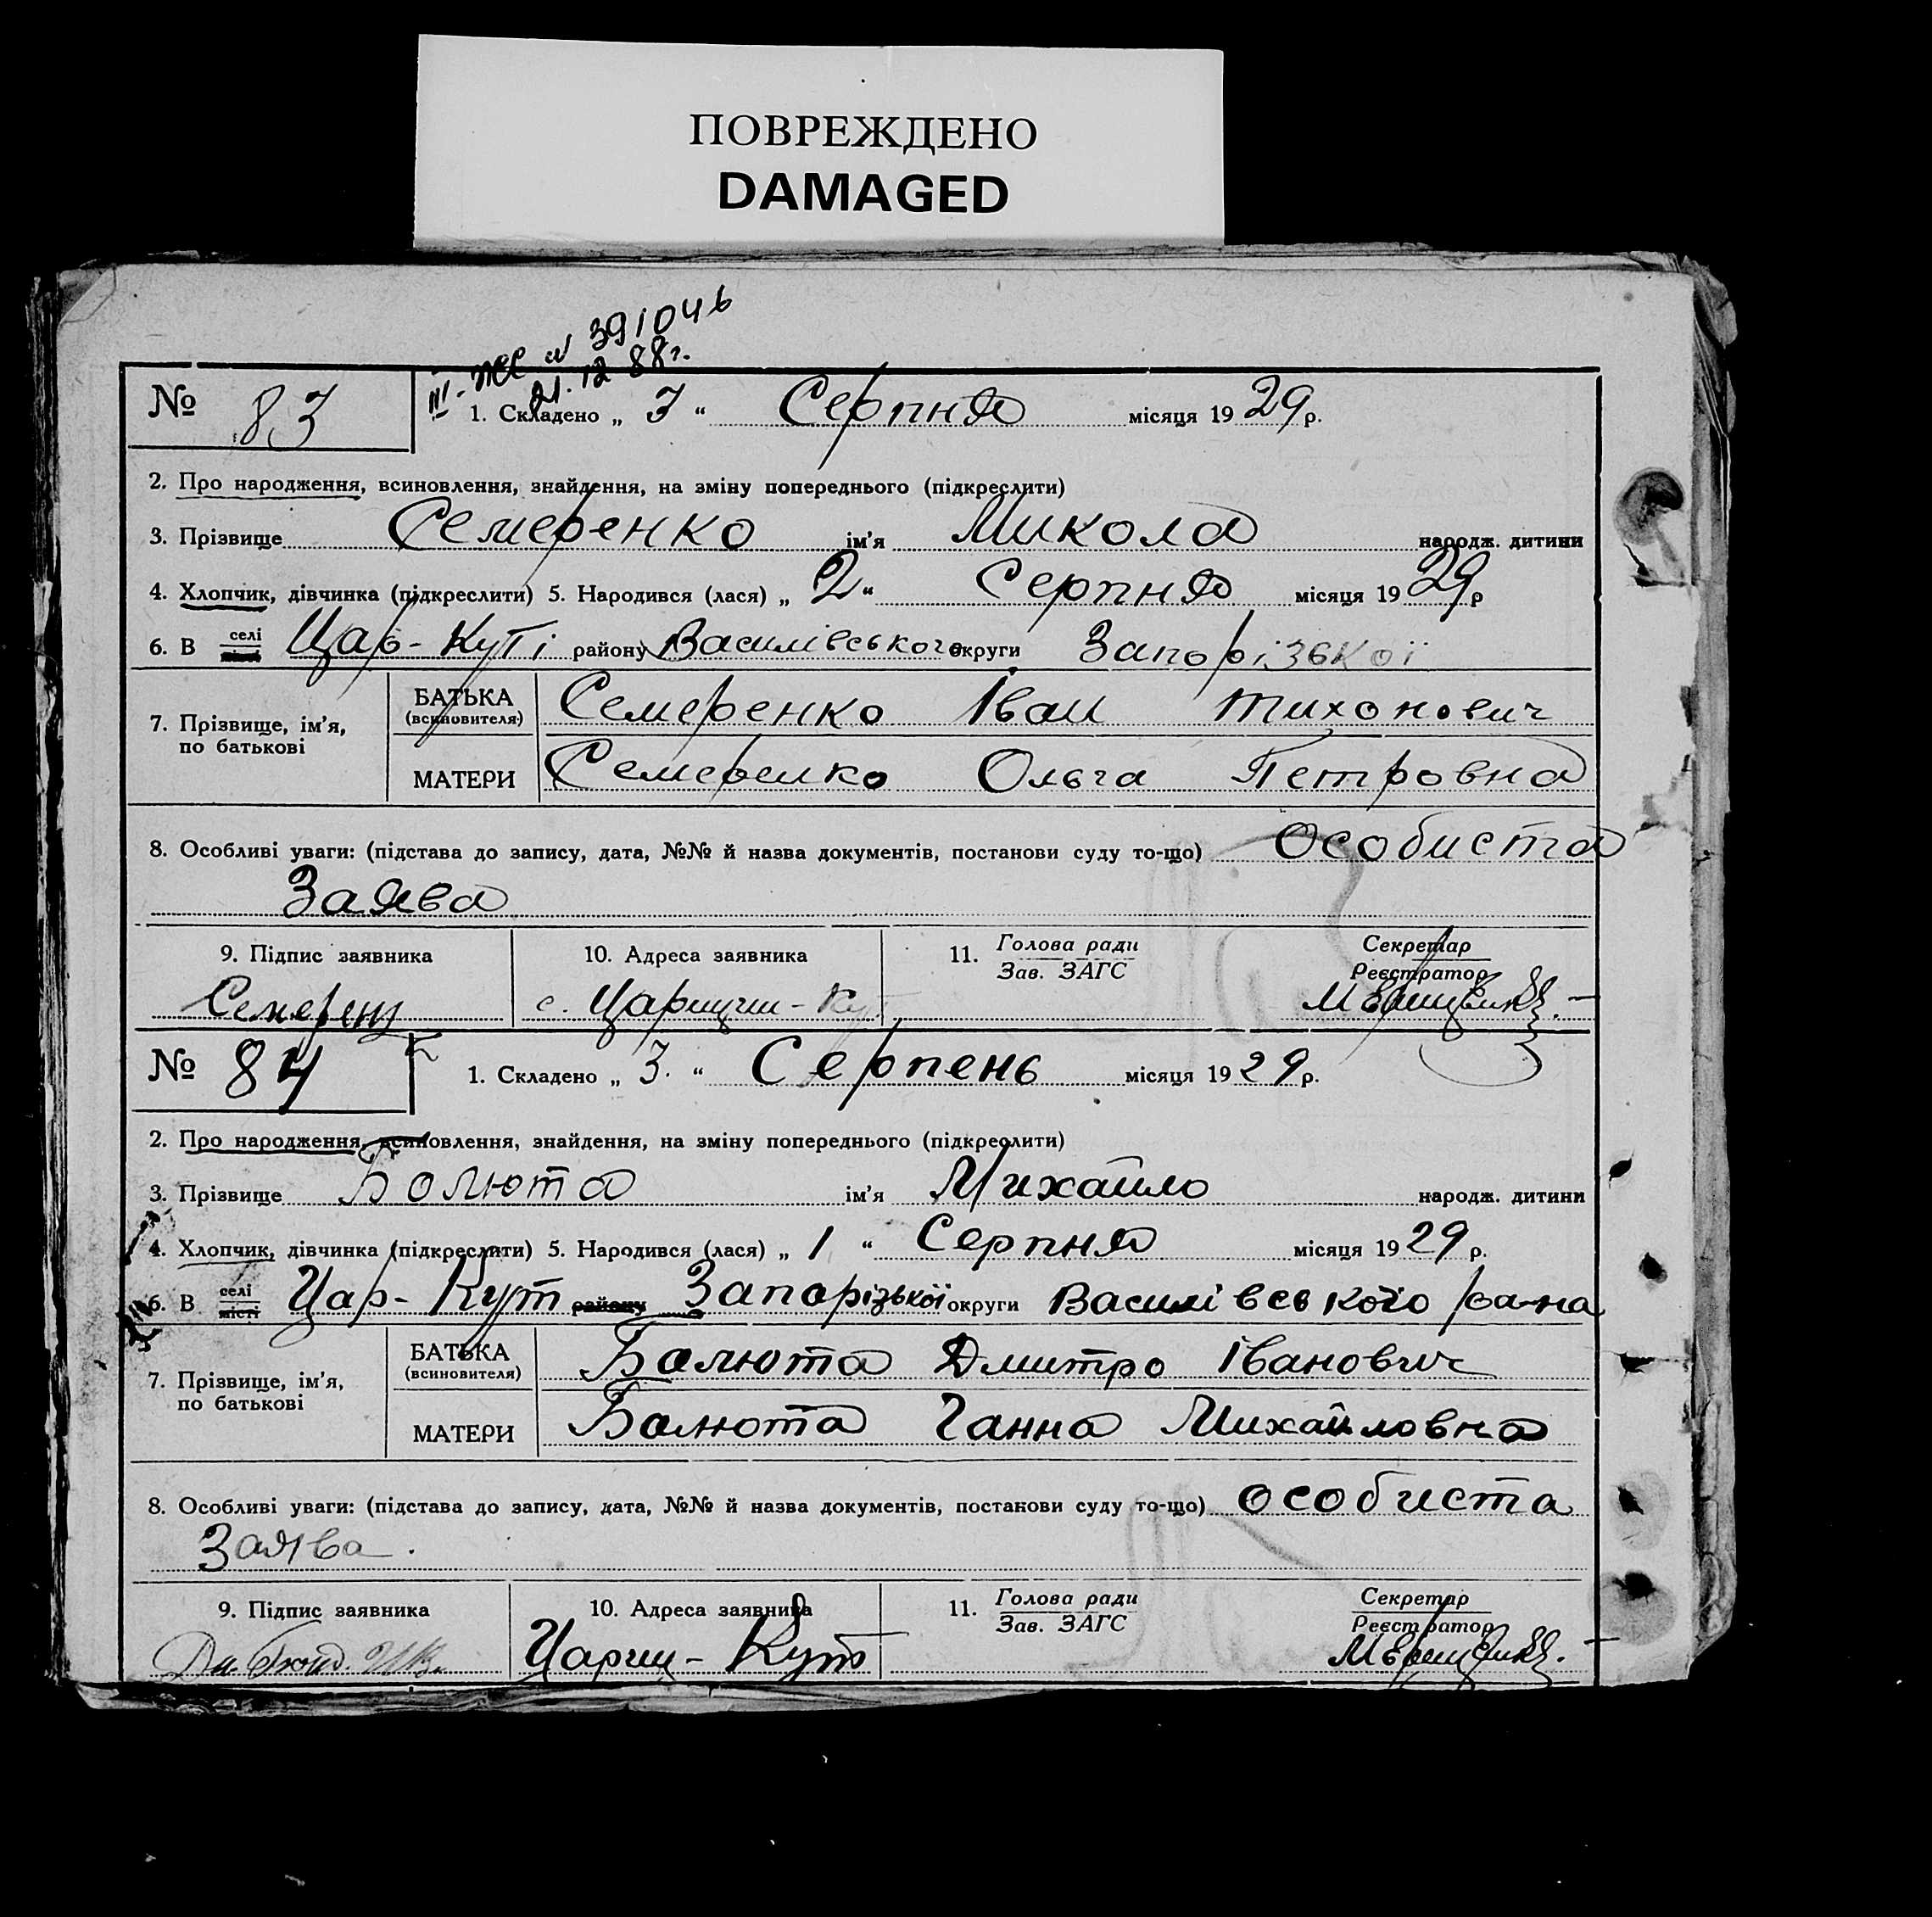 ПОВРЕЖДЕНО
DAMAGED
III-ЖС N 391046
21.12 88г.
№ 83
1. Складено „ 3 “ Серпня місяця 1929 р.
2. Про народження, всиновлення, знайдення, на зміну попереднього (підкреслити)
3. Прізвище Семеренко ім'я Микола народж. дитини
4. Хлопчик, дівчинка (підкреслити) 5. Народився (лася) „ 2 “ Серпня місяця 1929 р
6. В селі місті Цар-Куті району Василівського округи Запорізької
7. Прізвище, ім'я, по батькові
БАТЬКА (всиновителя) Семеренко Іван Тихонович
МАТЕРИ Семеренко Ольга Петровна
8. Особливі уваги: (підстава до запису, дата, №№ й назва документів, постанови суду то-що) Особиста
Заява
9. Підпис заявника 10. Адреса заявника 11. Голова ради Зав. ЗАГС Секретар Реєстратор
с. Царицин-Кут
№ 84
1. Складено „ 3. “ Серпень місяця 1929 р.
2. Про народження, всиновлення, знайдення, на зміну попереднього (підкреслити)
3. Прізвище Балюта ім'я Михайло народж. дитини
4. Хлопчик, дівчинка (підкреслити) 5. Народився (лася) „ 1 “ Серпня місяця 1929 р.
6. В селі місті Цар-Кут району Запорізької округи Василівського ра-на
7. Прізвище, ім'я, по батькові
БАТЬКА (всиновителя) Балюта Дмитро Іванович
МАТЕРИ Балюта Ганна Михайловна
8. Особливі уваги: (підстава до запису, дата, №№ й назва документів, постанови суду то-що) особиста
Заява.
9. Підпис заявника 10. Адреса заявника 11. Голова ради Зав. ЗАГС Секретар Реєстратор
Цариц-Кут